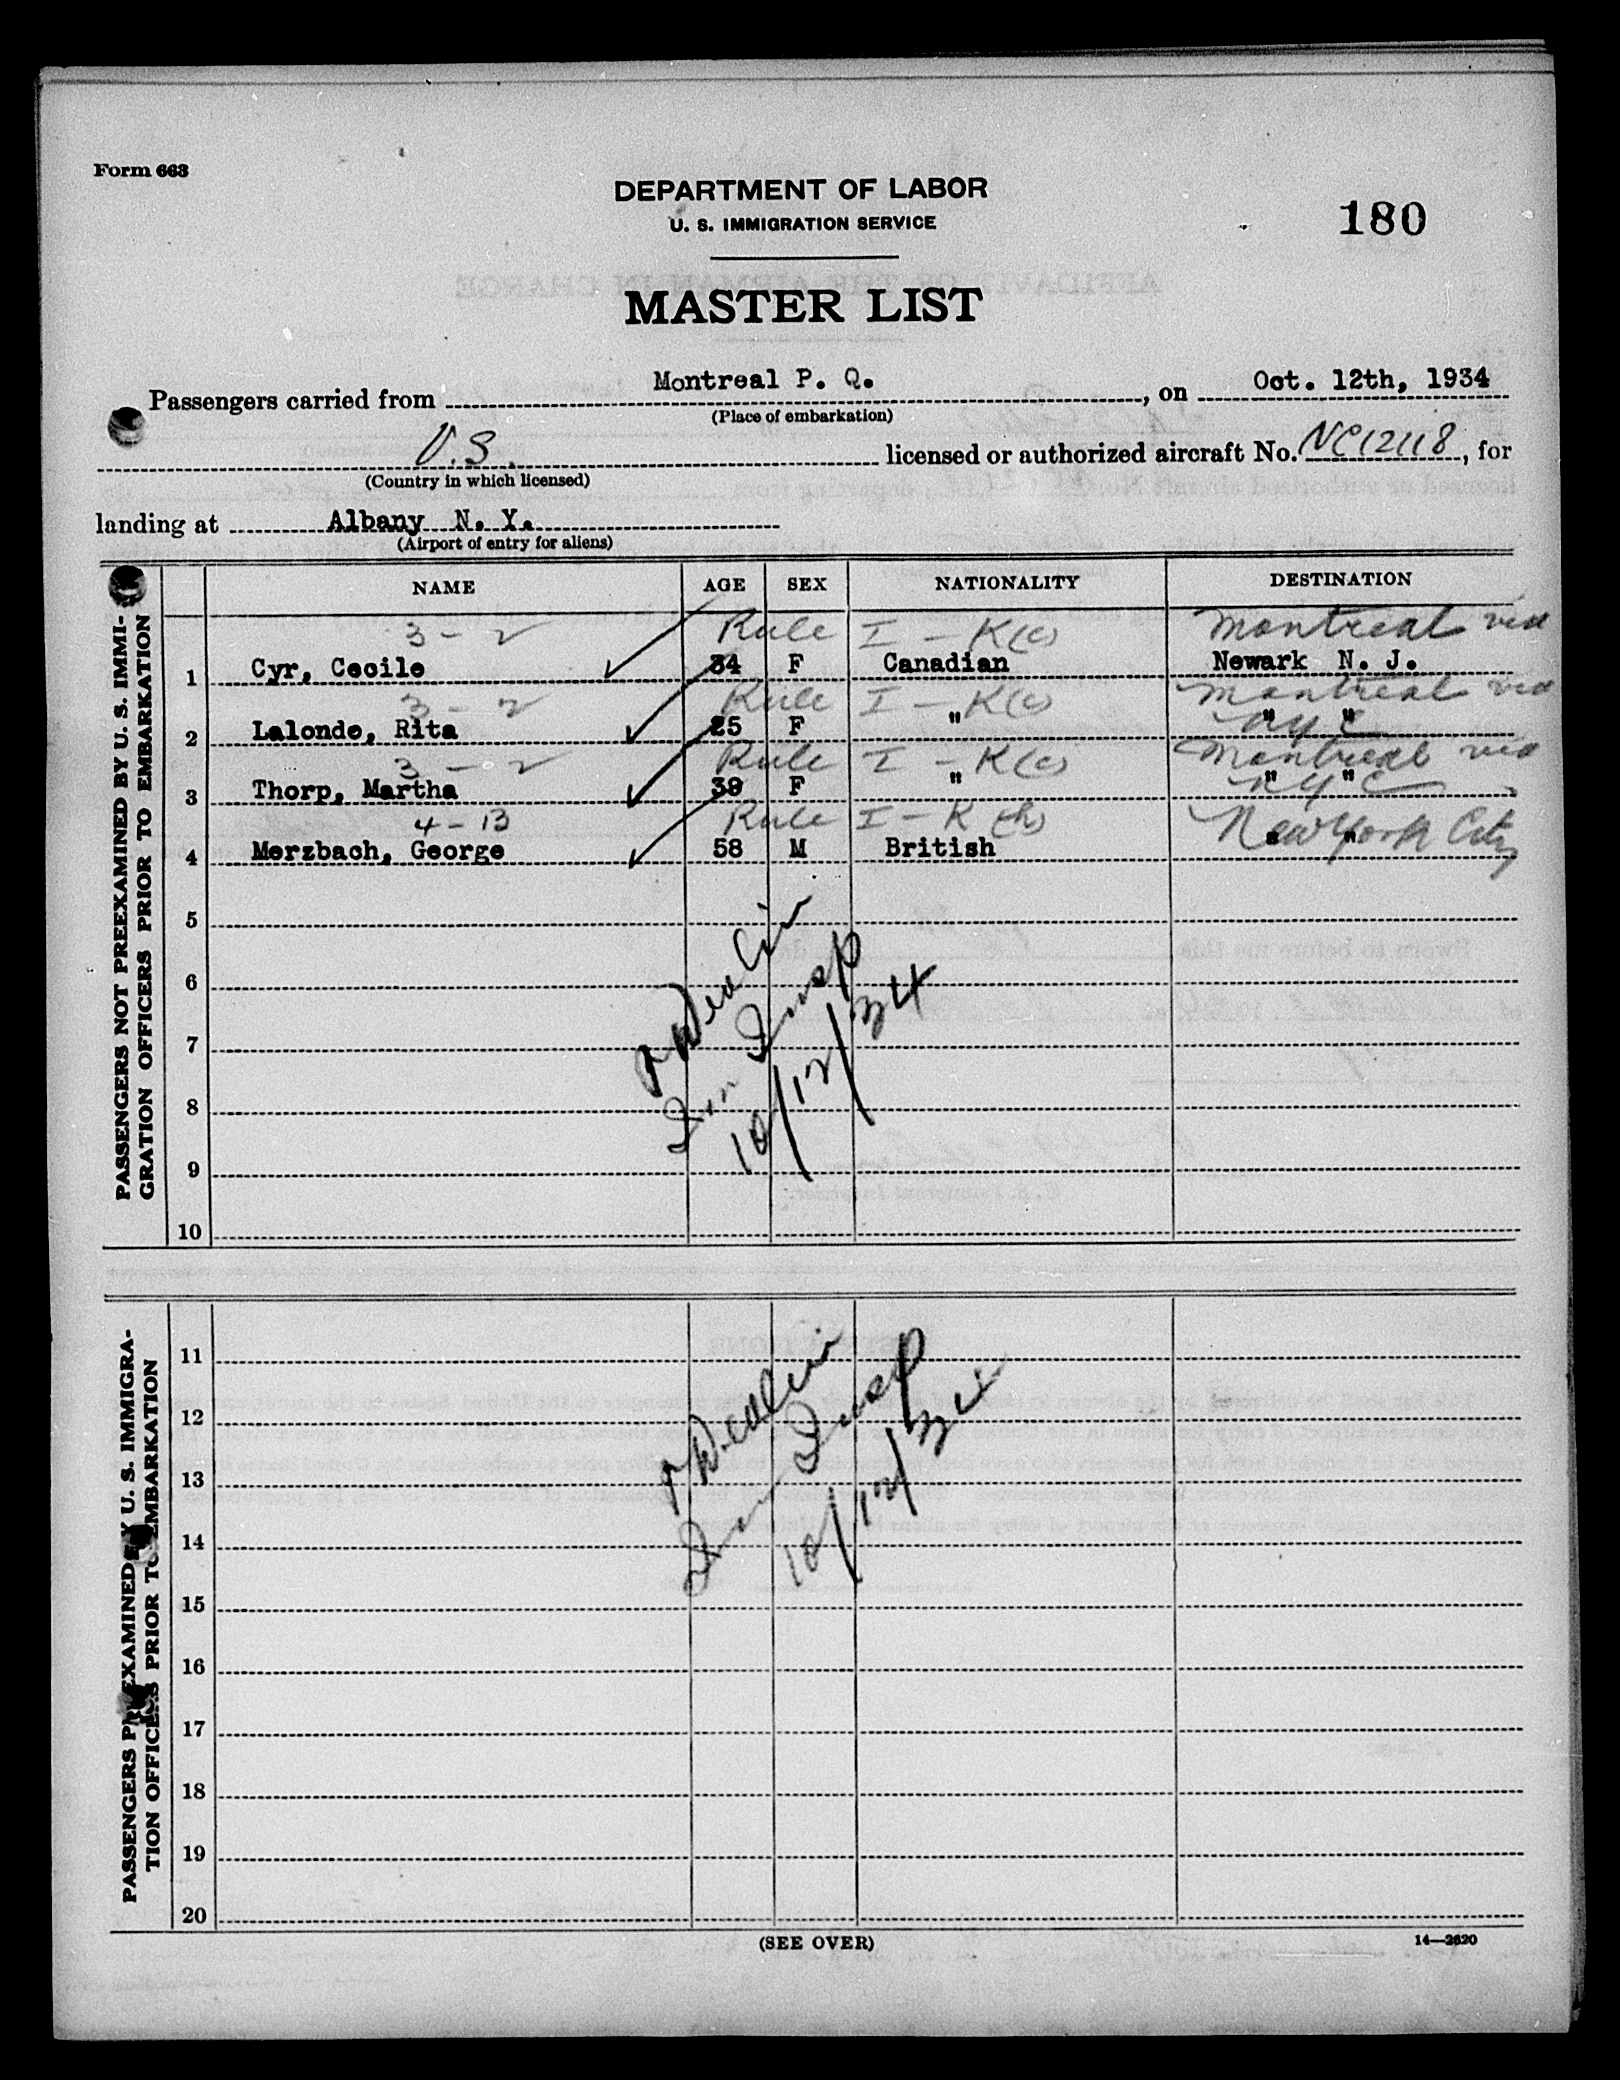 Form 663
DEPARTMENT OF LABOR
U. S. IMMIGRATION SERVICE
180
MASTER LIST
Passengers carried from Montreal P. Q., on Oct. 12th, 1934
(Place of embarkation)
U.S. licensed or authorized aircraft No. NC12118, for
(Country in which licensed)
landing at Albany N. Y.
(Airport of entry for aliens)
NAME AGE SEX NATIONALITY DESTINATION
PASSENGERS NOT PREEXAMINED BY U. S. IMMI-
GRATION OFFICERS PRIOR TO EMBARKATION
3 - 2 Rule I - K(c) Montreal via
1 Cyr, Cecile 34 F Canadian Newark N. J.
3 - 2 Rule I - K(c) Montreal via
2 Lalonde, Rita 25 F " " " NYC
3 - 2 Rule I - K(c) Montreal via
3 Thorp, Martha 39 F " " " NYC
4 - 13 Rule I - K (h) New York City
4 Merzbach, George 58 M British " "
5
6
7
8
9
10
Imm Insp
10/12/34
PASSENGERS PREEXAMINED BY U. S. IMMIGRA-
TION OFFICERS PRIOR TO EMBARKATION
11
12
13
14
15
16
17
18
19
20
Imm Insp
10/12/34
(SEE OVER)
14—2620